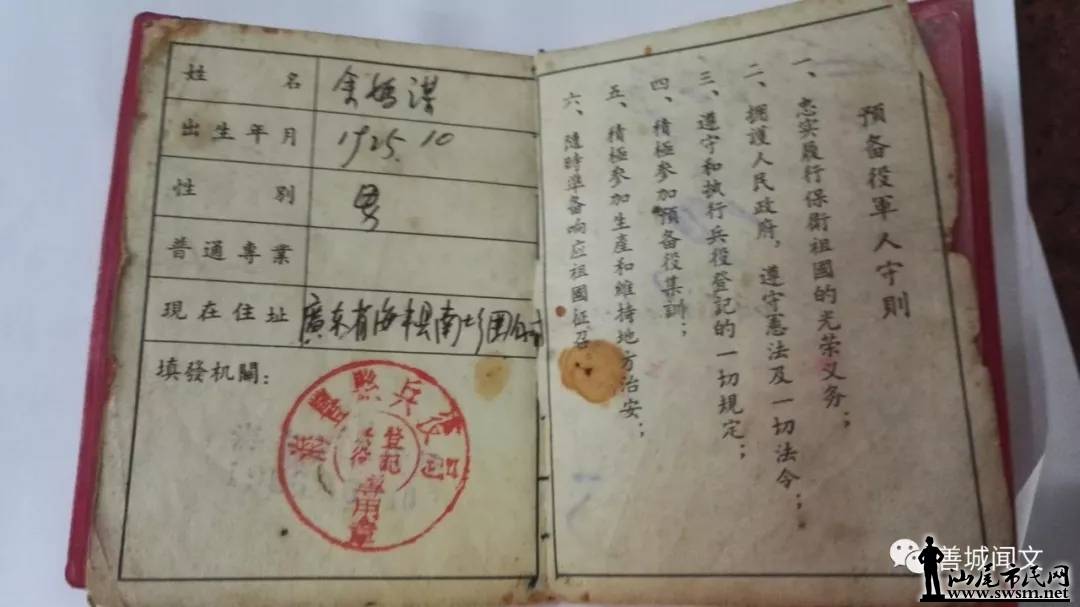 姓名
出生年月 1925.10
性别 男
普通專業
現在住址 廣东省海丰县南
填發机關：
兵役
登記
專用章
預备役軍人守則
一、忠实履行保衛祖國的光荣义务；
二、擁護人民政府，遵守憲法及一切法令；
三、遵守和执行兵役登記的一切規定；
四、積極參加預备役集訓；
五、積極參加生產和維持地方治安；
六、隨時準备响应祖國征召。
善城闻文
汕尾市民网
www.swsm.net